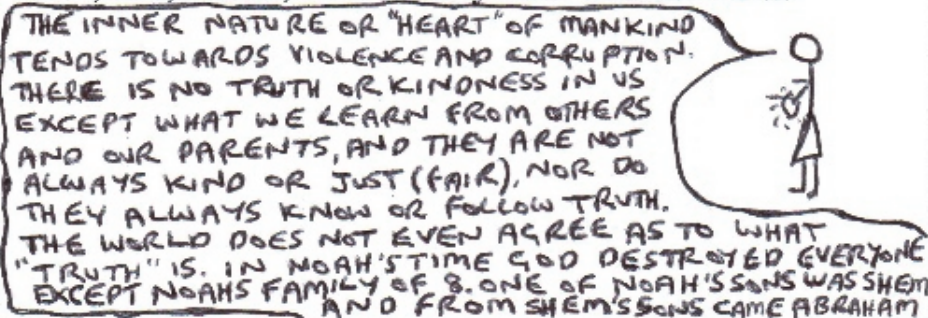 THE INNER NATURE OR "HEART" OF MANKIND
TENDS TOWARDS VIOLENCE AND CORRUPTION.
THERE IS NO TRUTH OR KINDNESS IN US
EXCEPT WHAT WE LEARN FROM OTHERS
AND OUR PARENTS, AND THEY ARE NOT
ALWAYS KIND OR JUST (FAIR), NOR DO
THEY ALWAYS KNOW OR FOLLOW TRUTH.
THE WORLD DOES NOT EVEN AGREE AS TO WHAT
"TRUTH" IS. IN NOAH'S TIME GOD DESTROYED EVERYONE
EXCEPT NOAHS FAMILY OF 8. ONE OF NOAH'S SONS WAS SHEM
AND FROM SHEM'S SONS CAME ABRAHAM